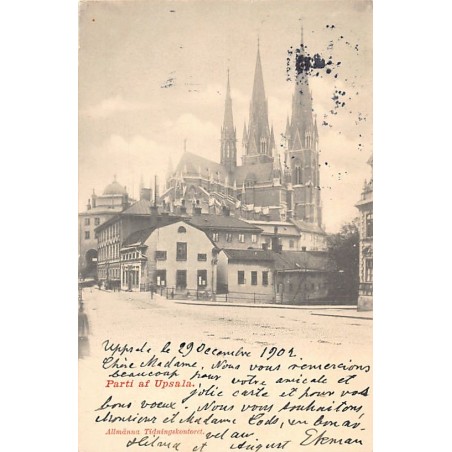 Uppsala le 29 Decembre 1902.
Chère Madame. Nous vous remercions
beaucoup pour votre amicale et
Parti af Upsala.
jolie carte et pour vos
bons voeux. Nous vous souhaitons,
Monsieur et Madame Cods, un bon
Allmänna Tidningskontoret.
vel an
Hilma et August Ekman